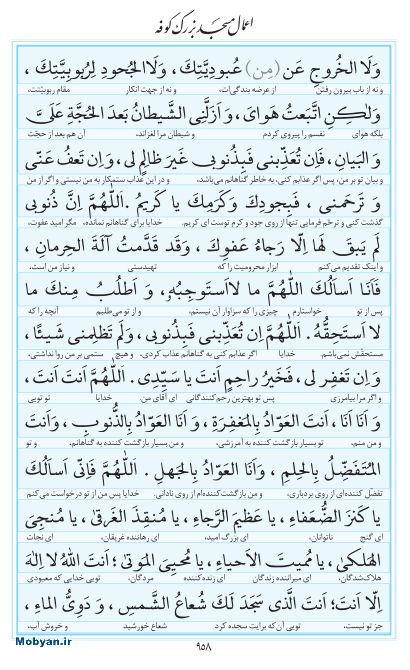 اعمال مسجد بزرگ کوفه
وَلَا الخُروجِ عَن (مِن) عُبودِيَّتِكَ، وَلَا الجُحودِ لِرُبوبِيَّتِكَ،
و نه از باب بیرون رفتن از عرضه بندگی‌ات، و نه از جهت انکار مقام ربوبیّتت،
وَلٰكِنِ اتَّبَعتُ هَوایَ، وَ اَزَلَّنِی الشَّیطانُ بَعدَ الحُجَّةِ عَلَیَّ
بلکه هوای نفسم را پیروی کردم و شیطان مرا لغزاند، آن هم بعد از حجّت
وَ البَيانِ، فَاِن تُعَذِّبنی فَبِذُنوبی غَیرَ ظالِمٍ لی، وَ اِن تَعفُ عَنّی
و بیان تو بر من، پس اگر عذابم کنی، به خاطر گناهانم می‌باشد، و در این عذاب ستمکار به من نیستی و اگر از من
وَ تَرحَمنی، فَبِجودِكَ وَكَرَمِكَ یا كَریمُ. اَللّٰهُمَّ اِنَّ ذُنوبی
گذشت کنی و ترحم فرمایی تنها از روی جود و کرم توست ای کریم. خدایا برای گناهانم نمانده، مگر امید عفوت،
لَم یَبقَ لَها اِلّا رَجاءُ عَفوِكَ، وَ قَد قَدَّمتُ آلَةَ الحِرمانِ،
و اینک تقدیم می‌کنم ابزار محرومیت را که تهیدستی و نیاز من است،
فَاَنَا اَسأَلُكَ اللّٰهُمَّ ما لا اَستَوجِبُهُ، وَ اَطلُبُ مِنكَ ما
پس از تو خواستارم چیزی را که سزاوار آن نیستم، و از تو می‌طلبم آنچه را که
لا اَستَحِقُّهُ. اَللّٰهُمَّ اِن تُعَذِّبنی فَبِذُنوبی، وَلَم تَظلِمنی شَیئًا،
مستحقش نمی‌باشم. خدایا اگر عذابم کنی به گناهانم عذاب کردی، و هیچ ستمی بر من روا نداشتی،
وَ اِن تَغفِر لی، فَخَیرُ راحِمٍ اَنتَ یا سَیِّدی. اَللّٰهُمَّ اَنتَ اَنتَ،
و اگر مرا بیامرزی پس تو بهترین رحم‌کنندگانی ای آقای من. خدایا تو تویی
وَ اَنَا اَنَا، اَنتَ العَوّادُ بِالمَغفِرَةِ، وَ اَنَا العَوّادُ بِالذُّنوبِ، وَاَنتَ
و من منم، تو بسیار بازگشت کننده به آمرزشی، و من بسیار بازگشت کننده به گناهانم، و تو
المُتَفَضِّلُ بِالحِلمِ، وَاَنَا العَوّادُ بِالجَهلِ. اَللّٰهُمَّ فَاِنّی اَسأَلُكَ
تفضّل کننده‌ای از روی بردباری، و من بازگشت کننده‌ام از روی نادانی. خدایا پس من از تو درخواست می‌کنم
یا كَنزَ الضُّعَفاءِ، یا عَظیمَ الرَّجاءِ، یا مُنقِذَ الغَرقیٰ، یا مُنجِیَ
ای گنج ناتوانان، ای بزرگ امید، ای رهاننده غریقان، ای نجات
الهَلكیٰ، یا مُمیتَ الاَحیاءِ، یا مُحیِیَ المَوتیٰ؛ اَنتَ اللهُ لا اِلٰهَ
هلاک‌شدگان، ای میراننده زندگان ای زنده‌کننده مردگان، تویی خدایی که معبودی
اِلّا اَنتَ؛ اَنتَ الَّذی سَجَدَ لَكَ شُعاعُ الشَّمسِ، وَ دَوِیُّ الماءِ،
جز تو نیست، تویی آن‌که برایت سجده کرد شعاع خورشید و خروش آب،
۹۵۸
Mobyan.ir